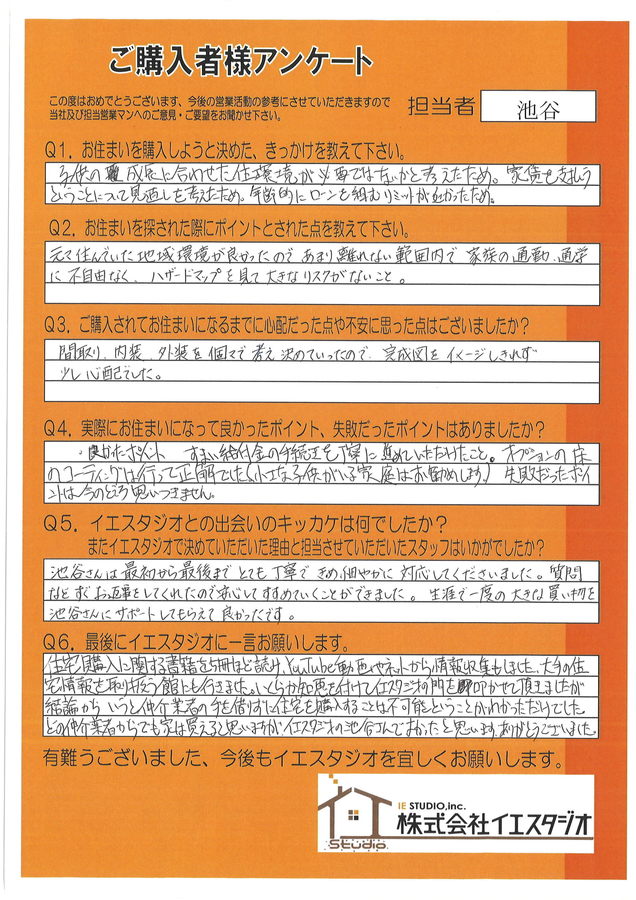 ご購入者様アンケート
この度はおめでとうございます、今後の営業活動の参考にさせていただきますので
当社及び担当営業マンへのご意見・ご要望をお聞かせ下さい。
担当者 池谷
Q1. お住まいを購入しようと決めた、きっかけを教えて下さい。
子供の成長に合わせた住環境が必要ではないかと考えたため。家賃を支払う
ということについて見直しを考えたため。年齢的にローンを組むリミットが近かったため。
Q2. お住まいを探された際にポイントとされた点を教えて下さい。
元々住んでいた地域環境が良かったので あまり離れない範囲内で 家族の通勤、通学
に不自由なく、ハザードマップを見て大きなリスクがないこと。
Q3. ご購入されてお住まいになるまでに心配だった点や不安に思った点はございましたか?
間取り、内装、外装を個々で考え決めていったので、完成図をイメージしきれず
少し心配でした。
Q4. 実際にお住まいになって良かったポイント、失敗だったポイントはありましたか?
・良かったポイント すまい給付金の手続きを丁寧に進めていただけたこと。オプションの床
のコーティングは行って正解でした(小さな子供がいる家庭はお勧めします) 失敗だったポイ
ントは今のところ思いつきません。
Q5. イエスタジオとの出会いのキッカケは何でしたか?
またイエスタジオで決めていただいた理由と担当させていただいたスタッフはいかがでしたか?
池谷さんは最初から最後までとても丁寧できめ細やかに対応してくださいました。質問
などすぐお返事をしてくれたので安心してすすめていくことができました。生涯で一度の大きな買い物を
池谷さんにサポートしてもらえて良かったです。
Q6. 最後にイエスタジオに一言お願いします。
住宅購入に関する書籍を5冊ほど読み、YouTube動画やネットから情報収集もしました、大手の住
宅情報を取り扱う館にも行きました。いくらか知恵を付けてイエスタジオの門を叩かせて頂きましたが
結論からいうと仲介業者の手を借りずに住宅を購入することは不可能ということがわかっただけでした。
どの仲介業者からでも家は買えると思いますがイエスタジオの池谷さんでよかったと思います。ありがとうございました。
有難うございました、今後もイエスタジオを宜しくお願いします。
IE STUDIO,inc.
株式会社イエスタジオ
Studio